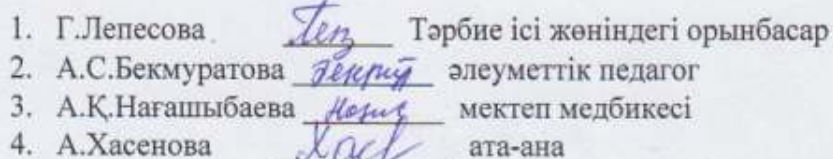 1. Г.Лепесова Тәрбие ісі жөніндегі орынбасар
2. А.С.Бекмуратова әлеуметтік педагог
3. А.Қ.Нағашыбаева мектеп медбикесі
4. А.Хасенова ата-ана